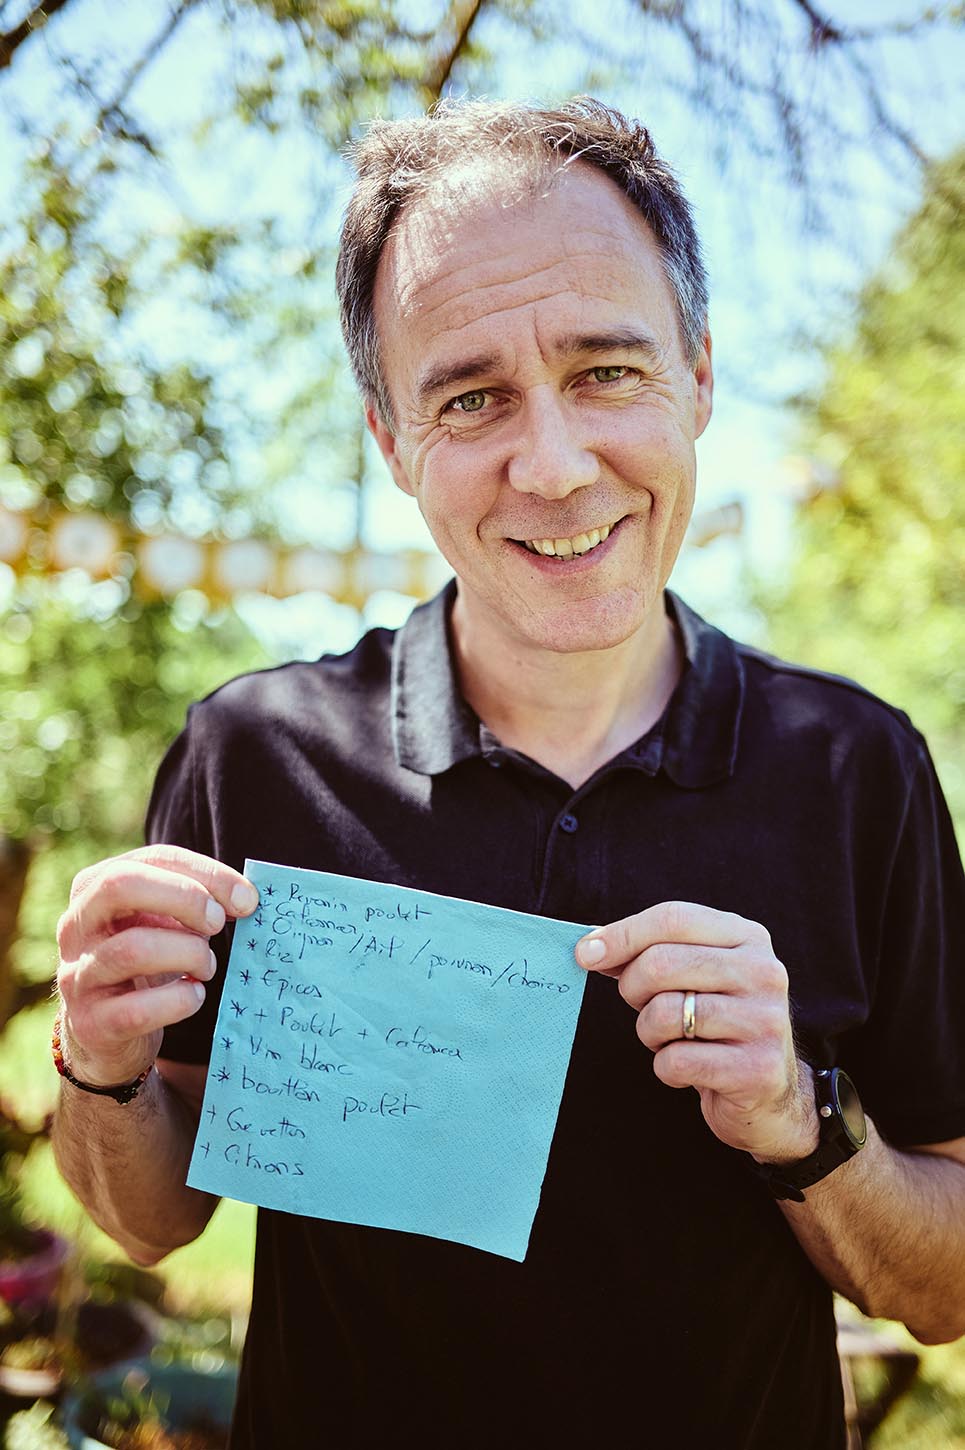 * Revenir poulet
* Calamar
* Oignon / Ail / poivron / chorizo
* Riz
* Epices
* + Poulet + Calamar
* Vin blanc
* bouillon poulet
+ Crevettes
+ Citrons